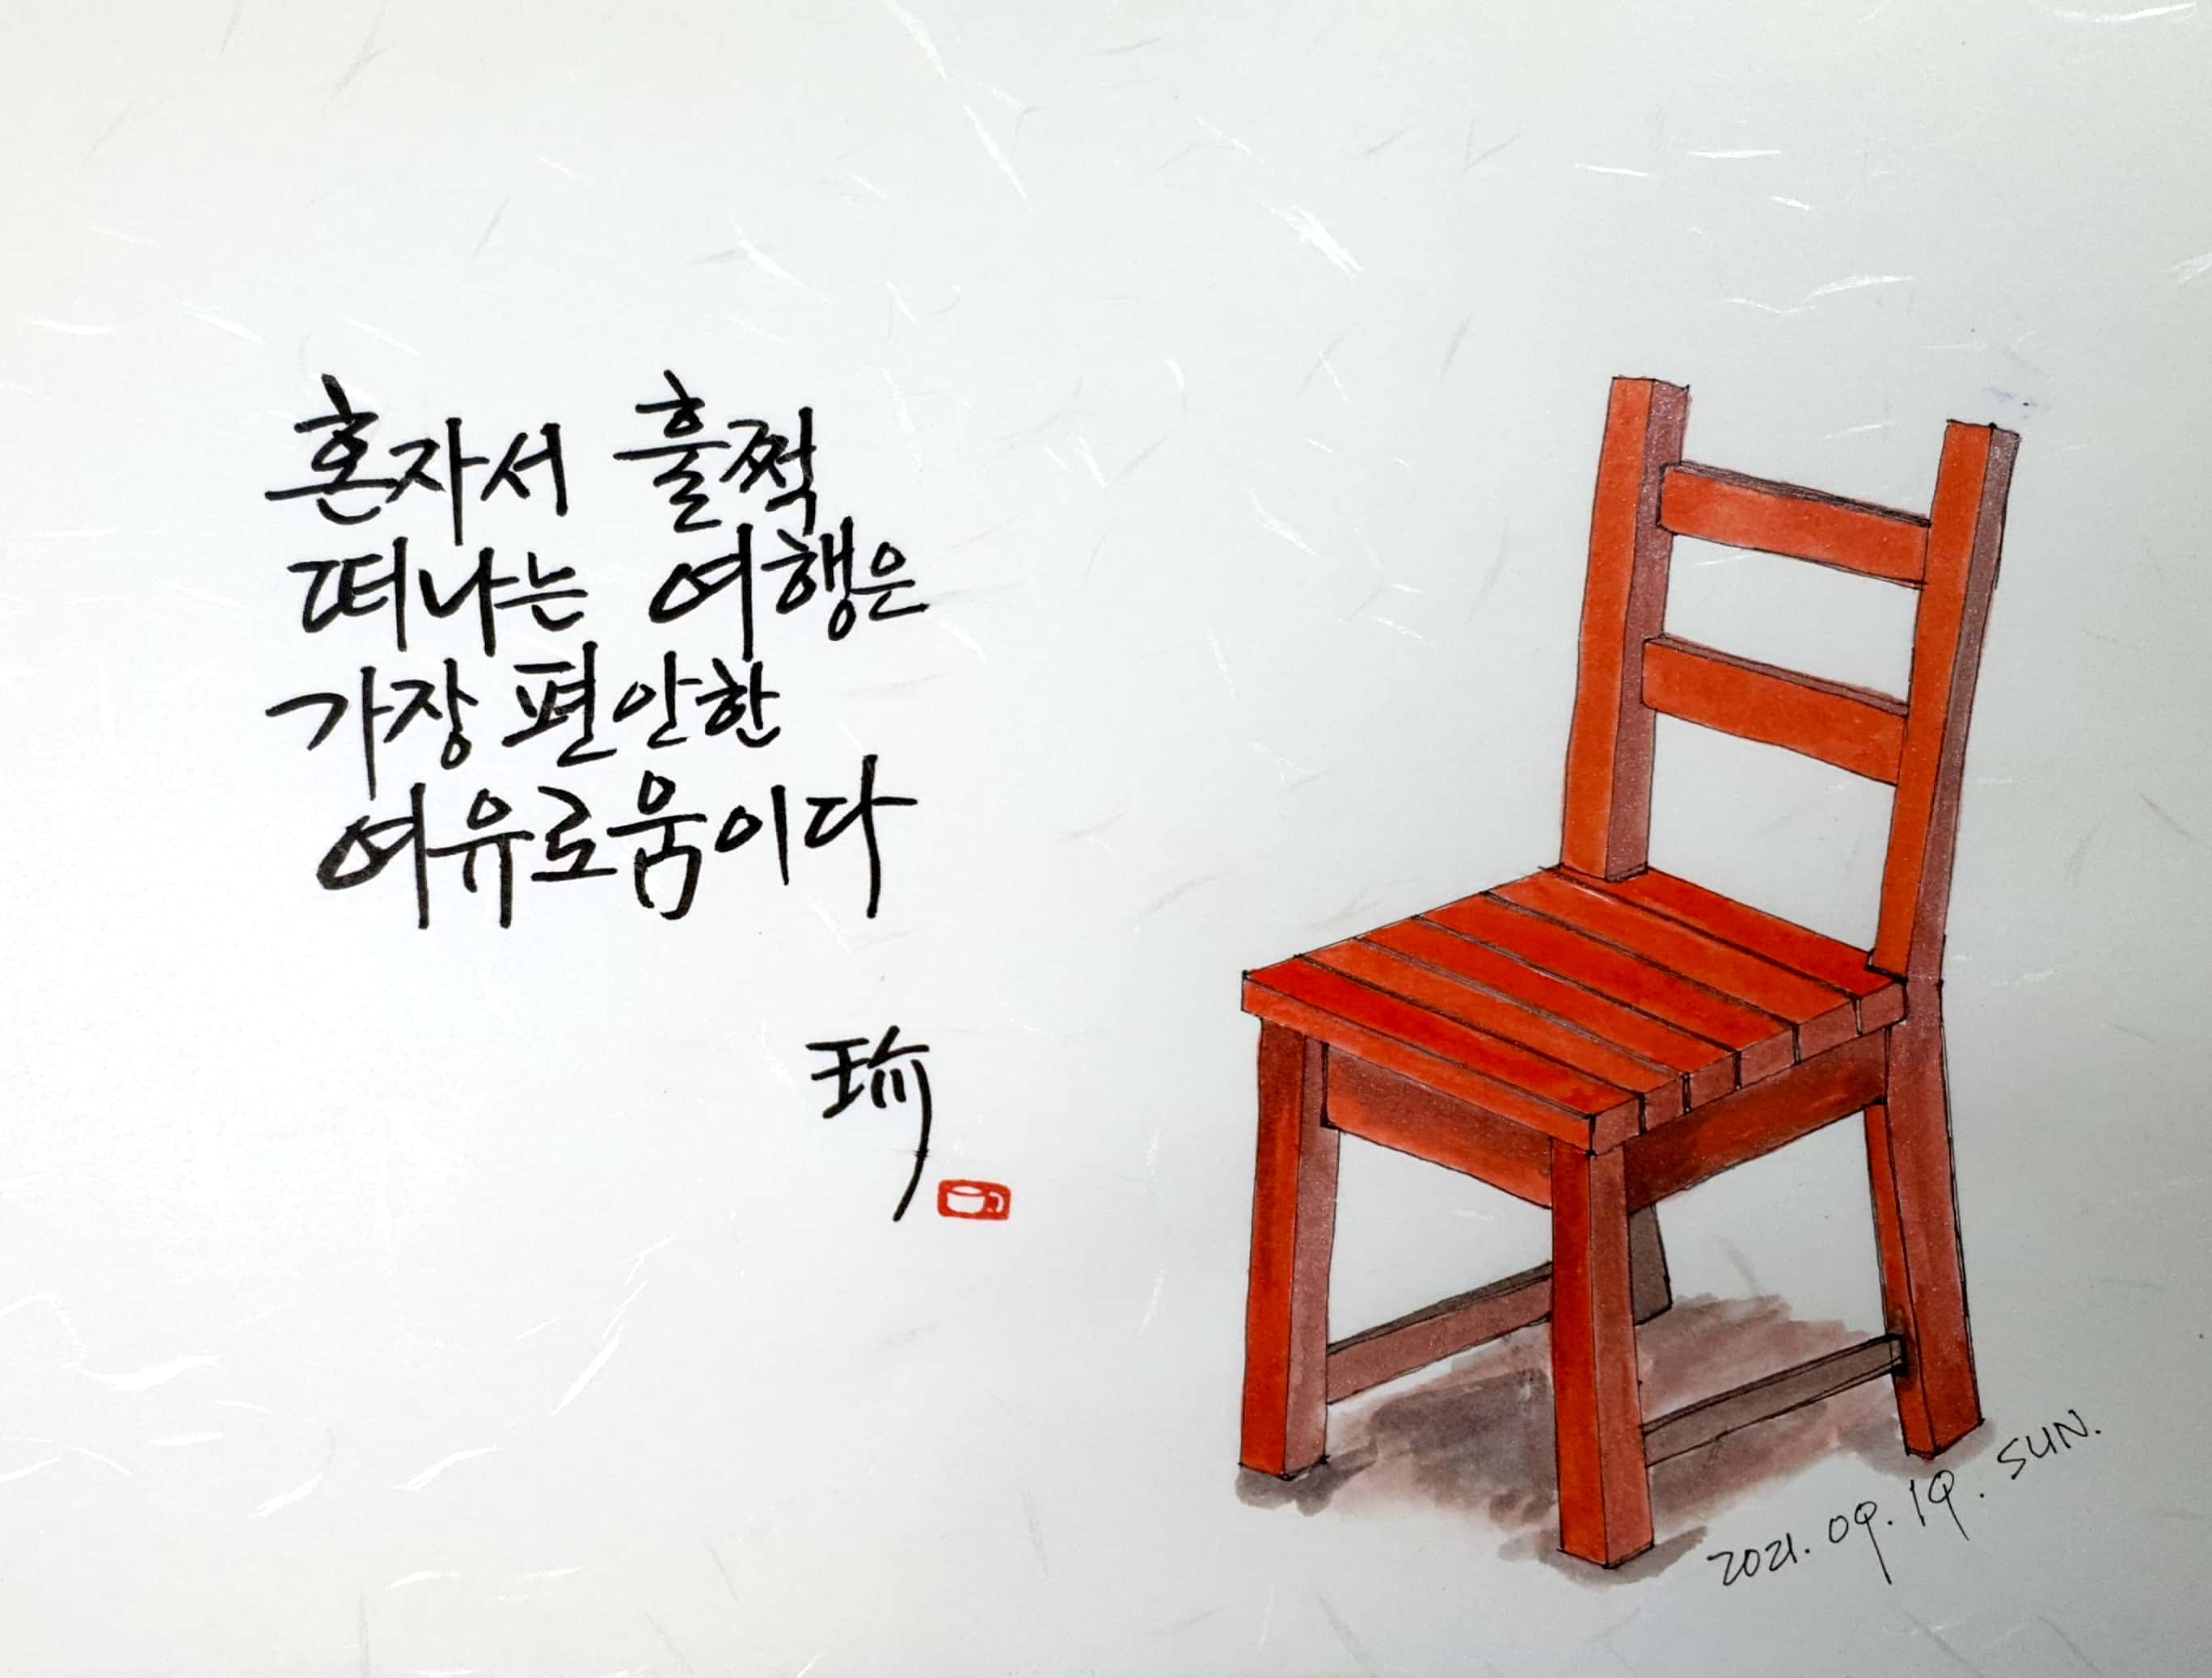 혼자서 훌쩍
떠나는 여행은
가장 편안한
여유로움이다
瑜
2021. 09. 19. SUN.